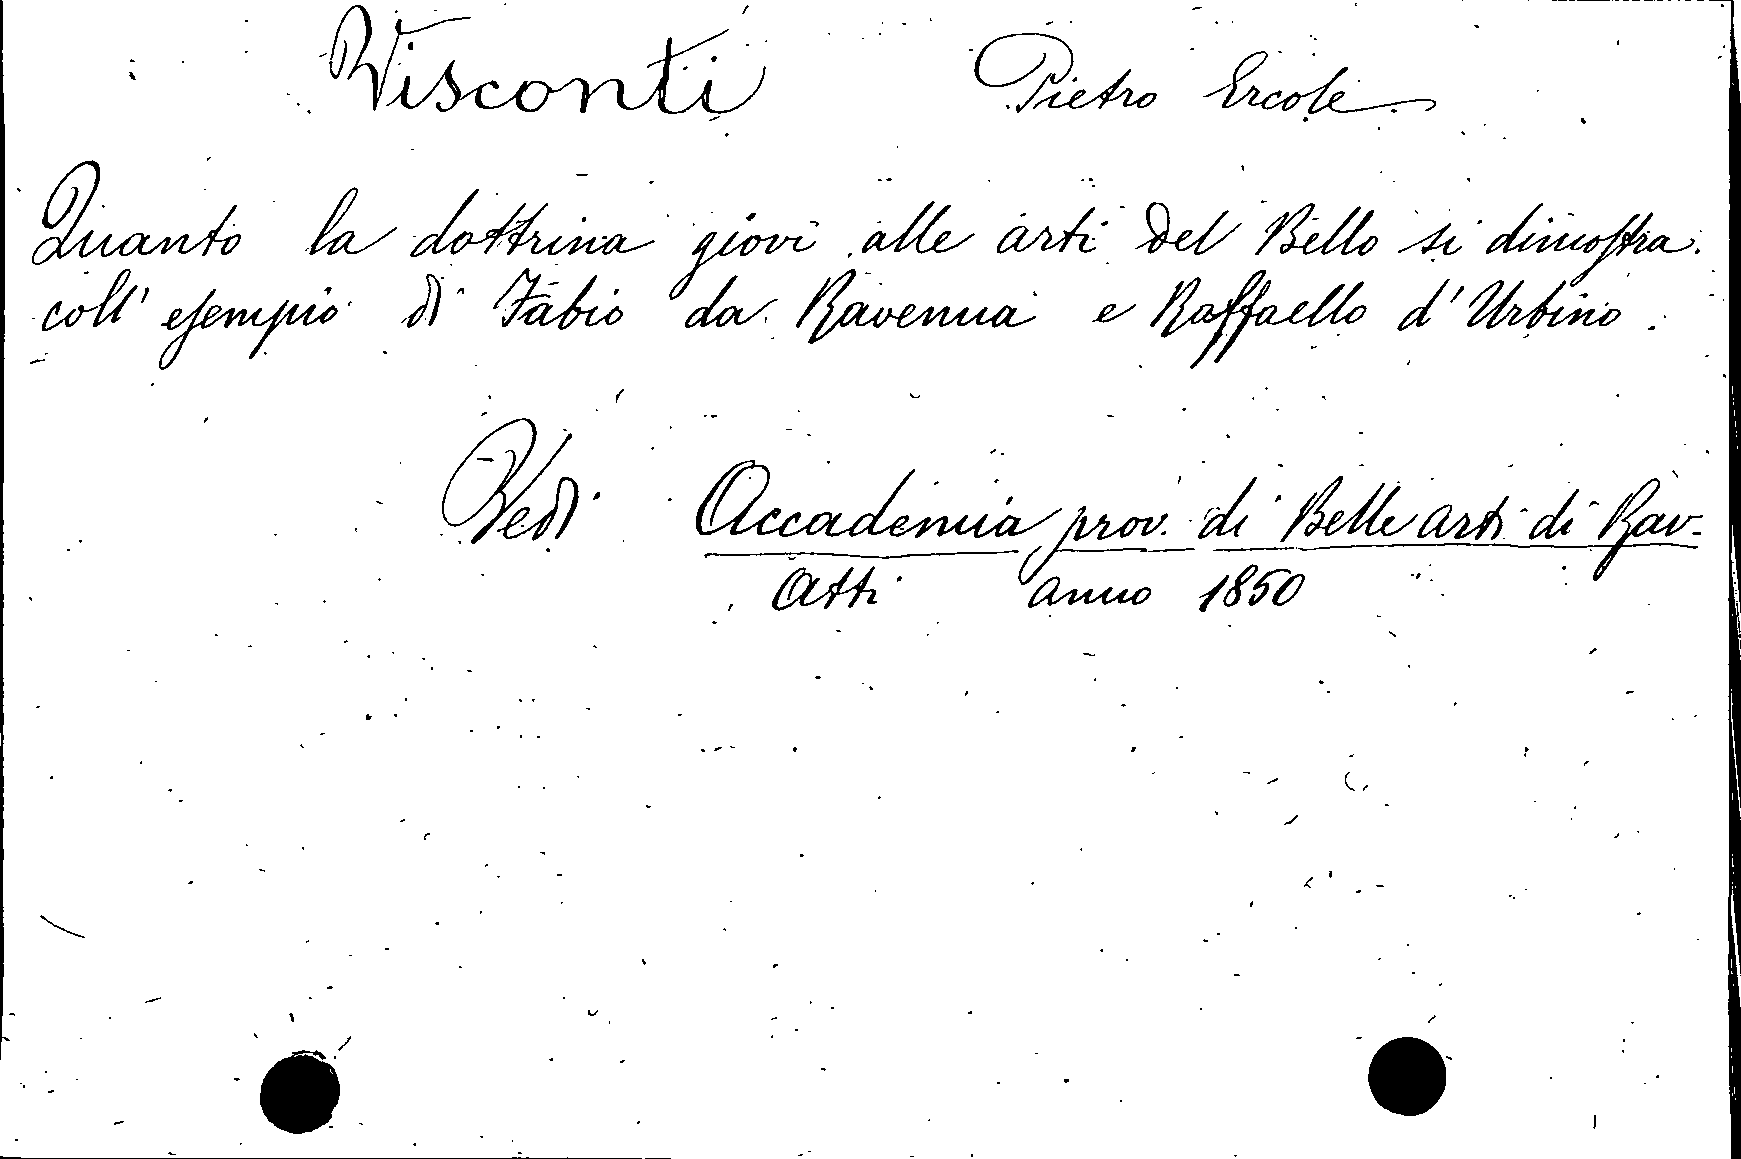 Visconti Pietro Ercole
Quanto la dottrina giovi alle arti del Bello si dimostra
coll' esempio di Fabio da Ravenna e Raffaello d' Urbino.
Vedi Accademia prov. di Belle arti di Rav-
Atti anno 1850